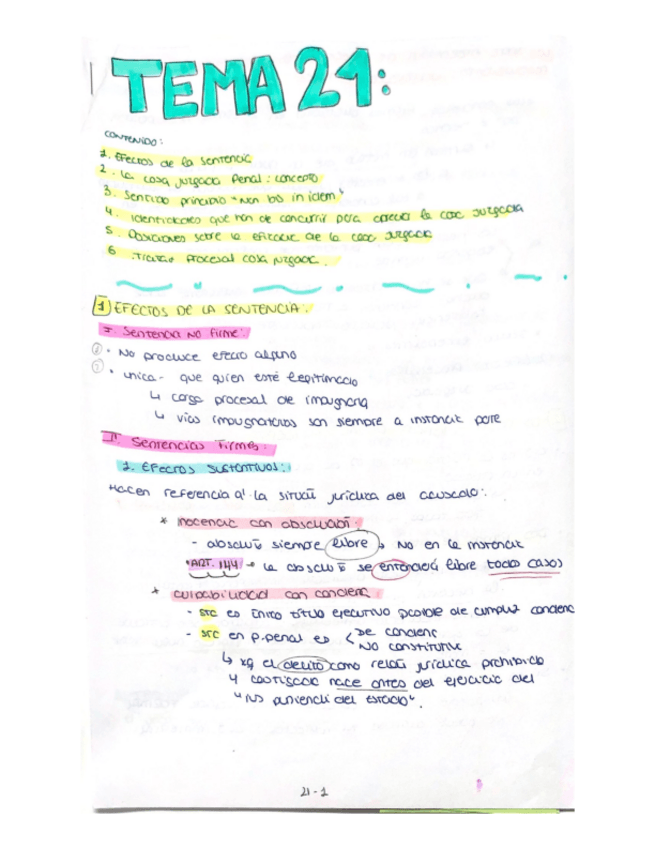 TEMA 21:
CONTENIDO:
1. Efectos de la sentencia
2. La cosa juzgada Penal: concepto
3. Sentido principio "Non bis in idem"
4. Identidades que han de concurrir para apreciar la cosa juzgada
5. Posiciones sobre la eficacia de la cosa juzgada
6. Tratam procesal cosa juzgada.
1 EFECTOS DE LA SENTENCIA:
I. Sentencia NO Firme:
· No produce efecto alguno
· única - que quien esté legitimado
↳ carga procesal de impugnarla
↳ vías impugnatorias son siempre a instancia parte
II Sentencias Firmes:
1. EFECTOS SUSTANTIVOS:
Hacen referencia a la situaū jurídica del acusado:
* inocencia con absoluciō:
- absoluū siempre libre → No en la instancia
*ART. 144 → la absoluū se entenderá libre todo caso)
* culpabilidad con condena
- STC es único título ejecutivo de cumplir condena
- STC en p.penal es < De condena
No constitutiva
↳ xq el delito como relaū jurídica prohibida
y castigada nace antes del ejercicio del
"ius puniendi del estado".
21-1